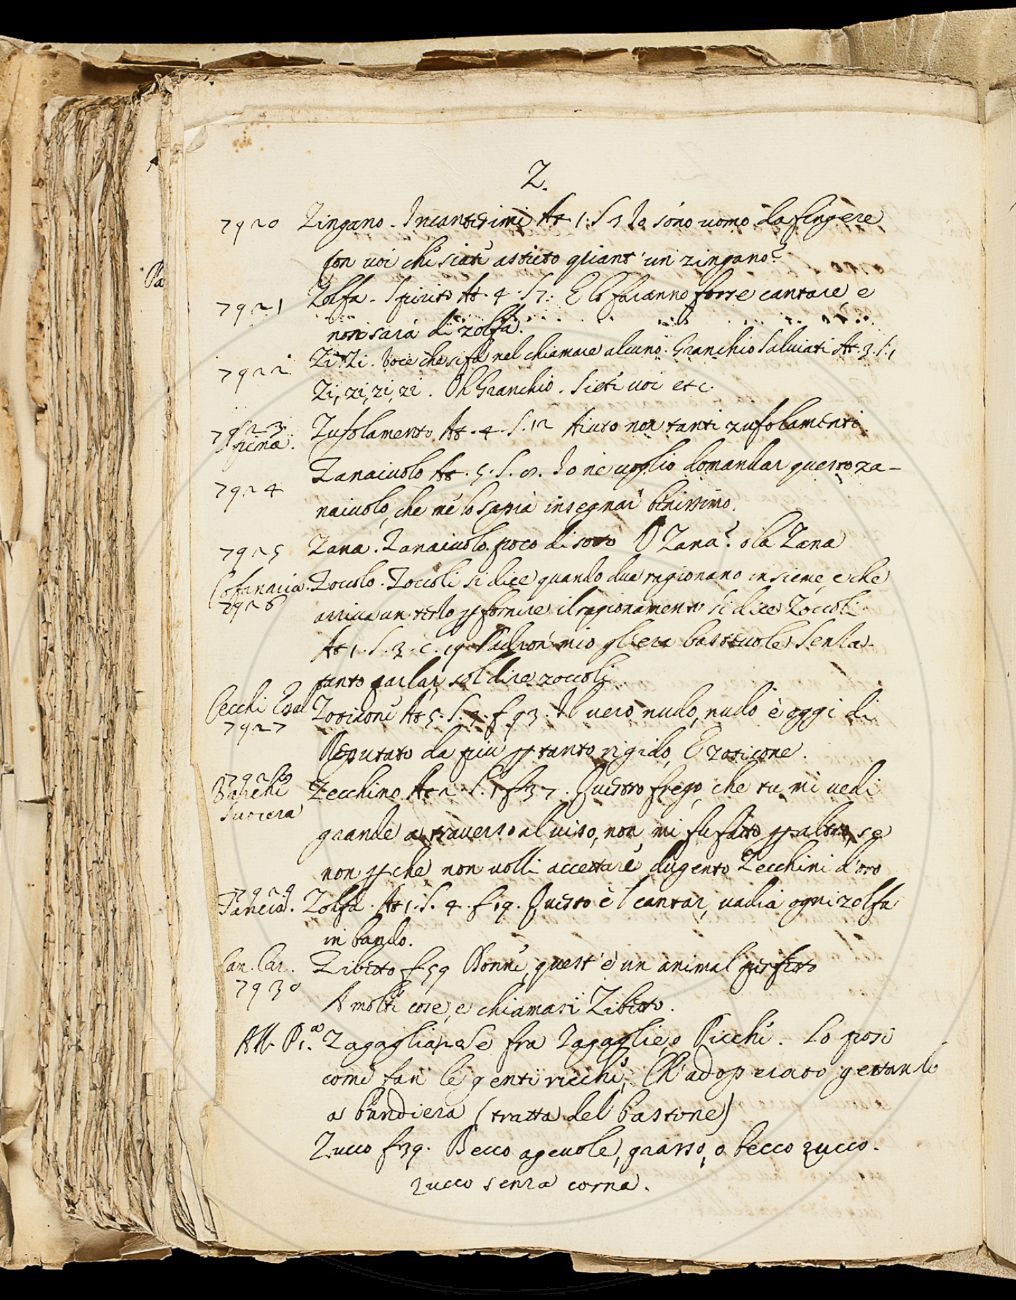 Z.
7920 Zingano. Incantesimi At. 1. S. 3 Io sono uomo da fingere
con voi che siate astuto quant' un zingano?
7921 Zolfa. Spirito At. 4. S. 7. E lo faranno forse cantare, e
non sarà di zolfa.
7922 Zi Zi. Voce che si fa nel chiamare alcuno. Granchio Salviati At. 3. S. 1
Zi, zi, zi, zi. Oh Granchio. Siete voi etc.
7923 Spina. Zufolamento At. 4. S. 12 Aiuto non tanti zufolamenti
7924 Zanaiuolo At. 5. S. Io ne voglio domandar questo za-
naiuolo, che me lo saprà insegnar benissimo.
7925 Zana. Zanaiuolo poco di sotto O Zana? ola Zana
Cofanaria. 7926 Zoccolo. Zoccoli si dice quando due ragionano insieme, e che
arriva un terzo p fornire il ragionamento si dice Zoccoli
At. 1. S. 3. c. 19. Padron mio gli era bastevole senza
tanto parlar sol dire zoccoli
Cecchi 7927 Zoticone At. 5. S. f. 93. Il vero nudo, nudo è oggi di
Reputato da più p tanto rigido, E zoticone.
7928 Zecchino At. 2. S. 1 f. 37. Questo frego, che tu mi vedi
grande a traverso al viso, non mi fu fatto p altro, se
non p che non volli accettare dugento Zecchini d'oro
7929 Tancia. Zolfa. At. 1. S. 4. f. 19. Questo è 'l cantar, vadia ogni zolfa
in bando.
Can. Car. 7930 Zibetto f. 59 Donne, quest' è un animal perfetto
A molte cose, e chiamasi Zibetto.
All. P. 1.ª fra Zagaglie, o Picche. Lo posi
come fan le genti ricche,
a bandiera (tratta del bastone)
Zucco f. 39. Becco agevole, grasso, o becco zucco.
zucco senza corna.